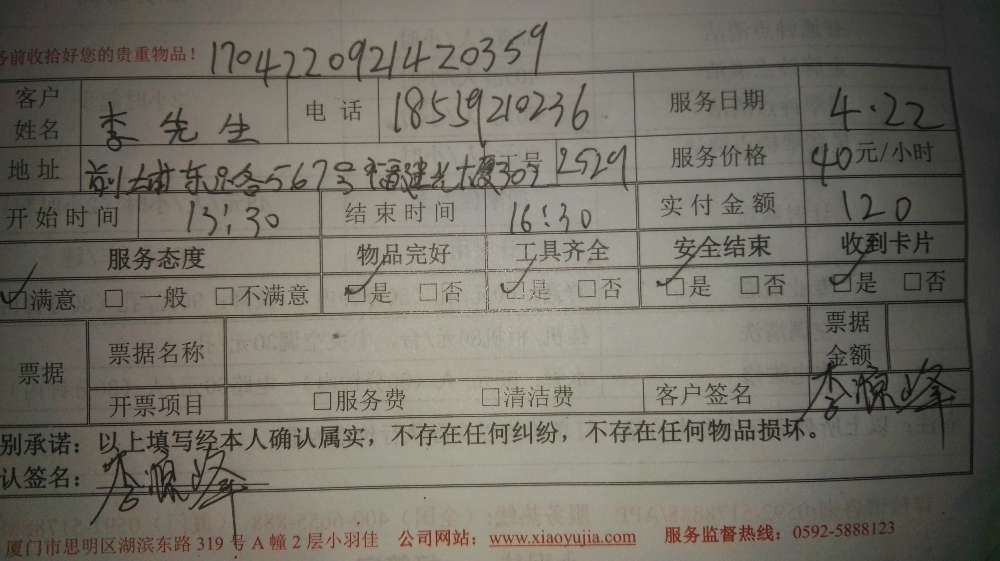 前收拾好您的贵重物品！ 1704220921420359
客户姓名 李先生 电话 18559210236 服务日期 4.22
地址 前埔东路567号福建光大厦30号 工号 2529 服务价格 40元/小时
开始时间 13:30 结束时间 16:30 实付金额 120
服务态度 物品完好 工具齐全 安全结束 收到卡片
☑满意 □ 一般 □不满意 ☑是 □否 ☑是 □否 ☑是 □否 ☑是 □否
票据 票据名称 票据金额
开票项目 □服务费 □清洁费 客户签名 李源峰
别承诺：以上填写经本人确认属实，不存在任何纠纷，不存在任何物品损坏。
认签名：李源峰
厦门市思明区湖滨东路 319 号 A 幢 2 层小羽佳 公司网站：www.xiaoyujia.com 服务监督热线：0592-5888123